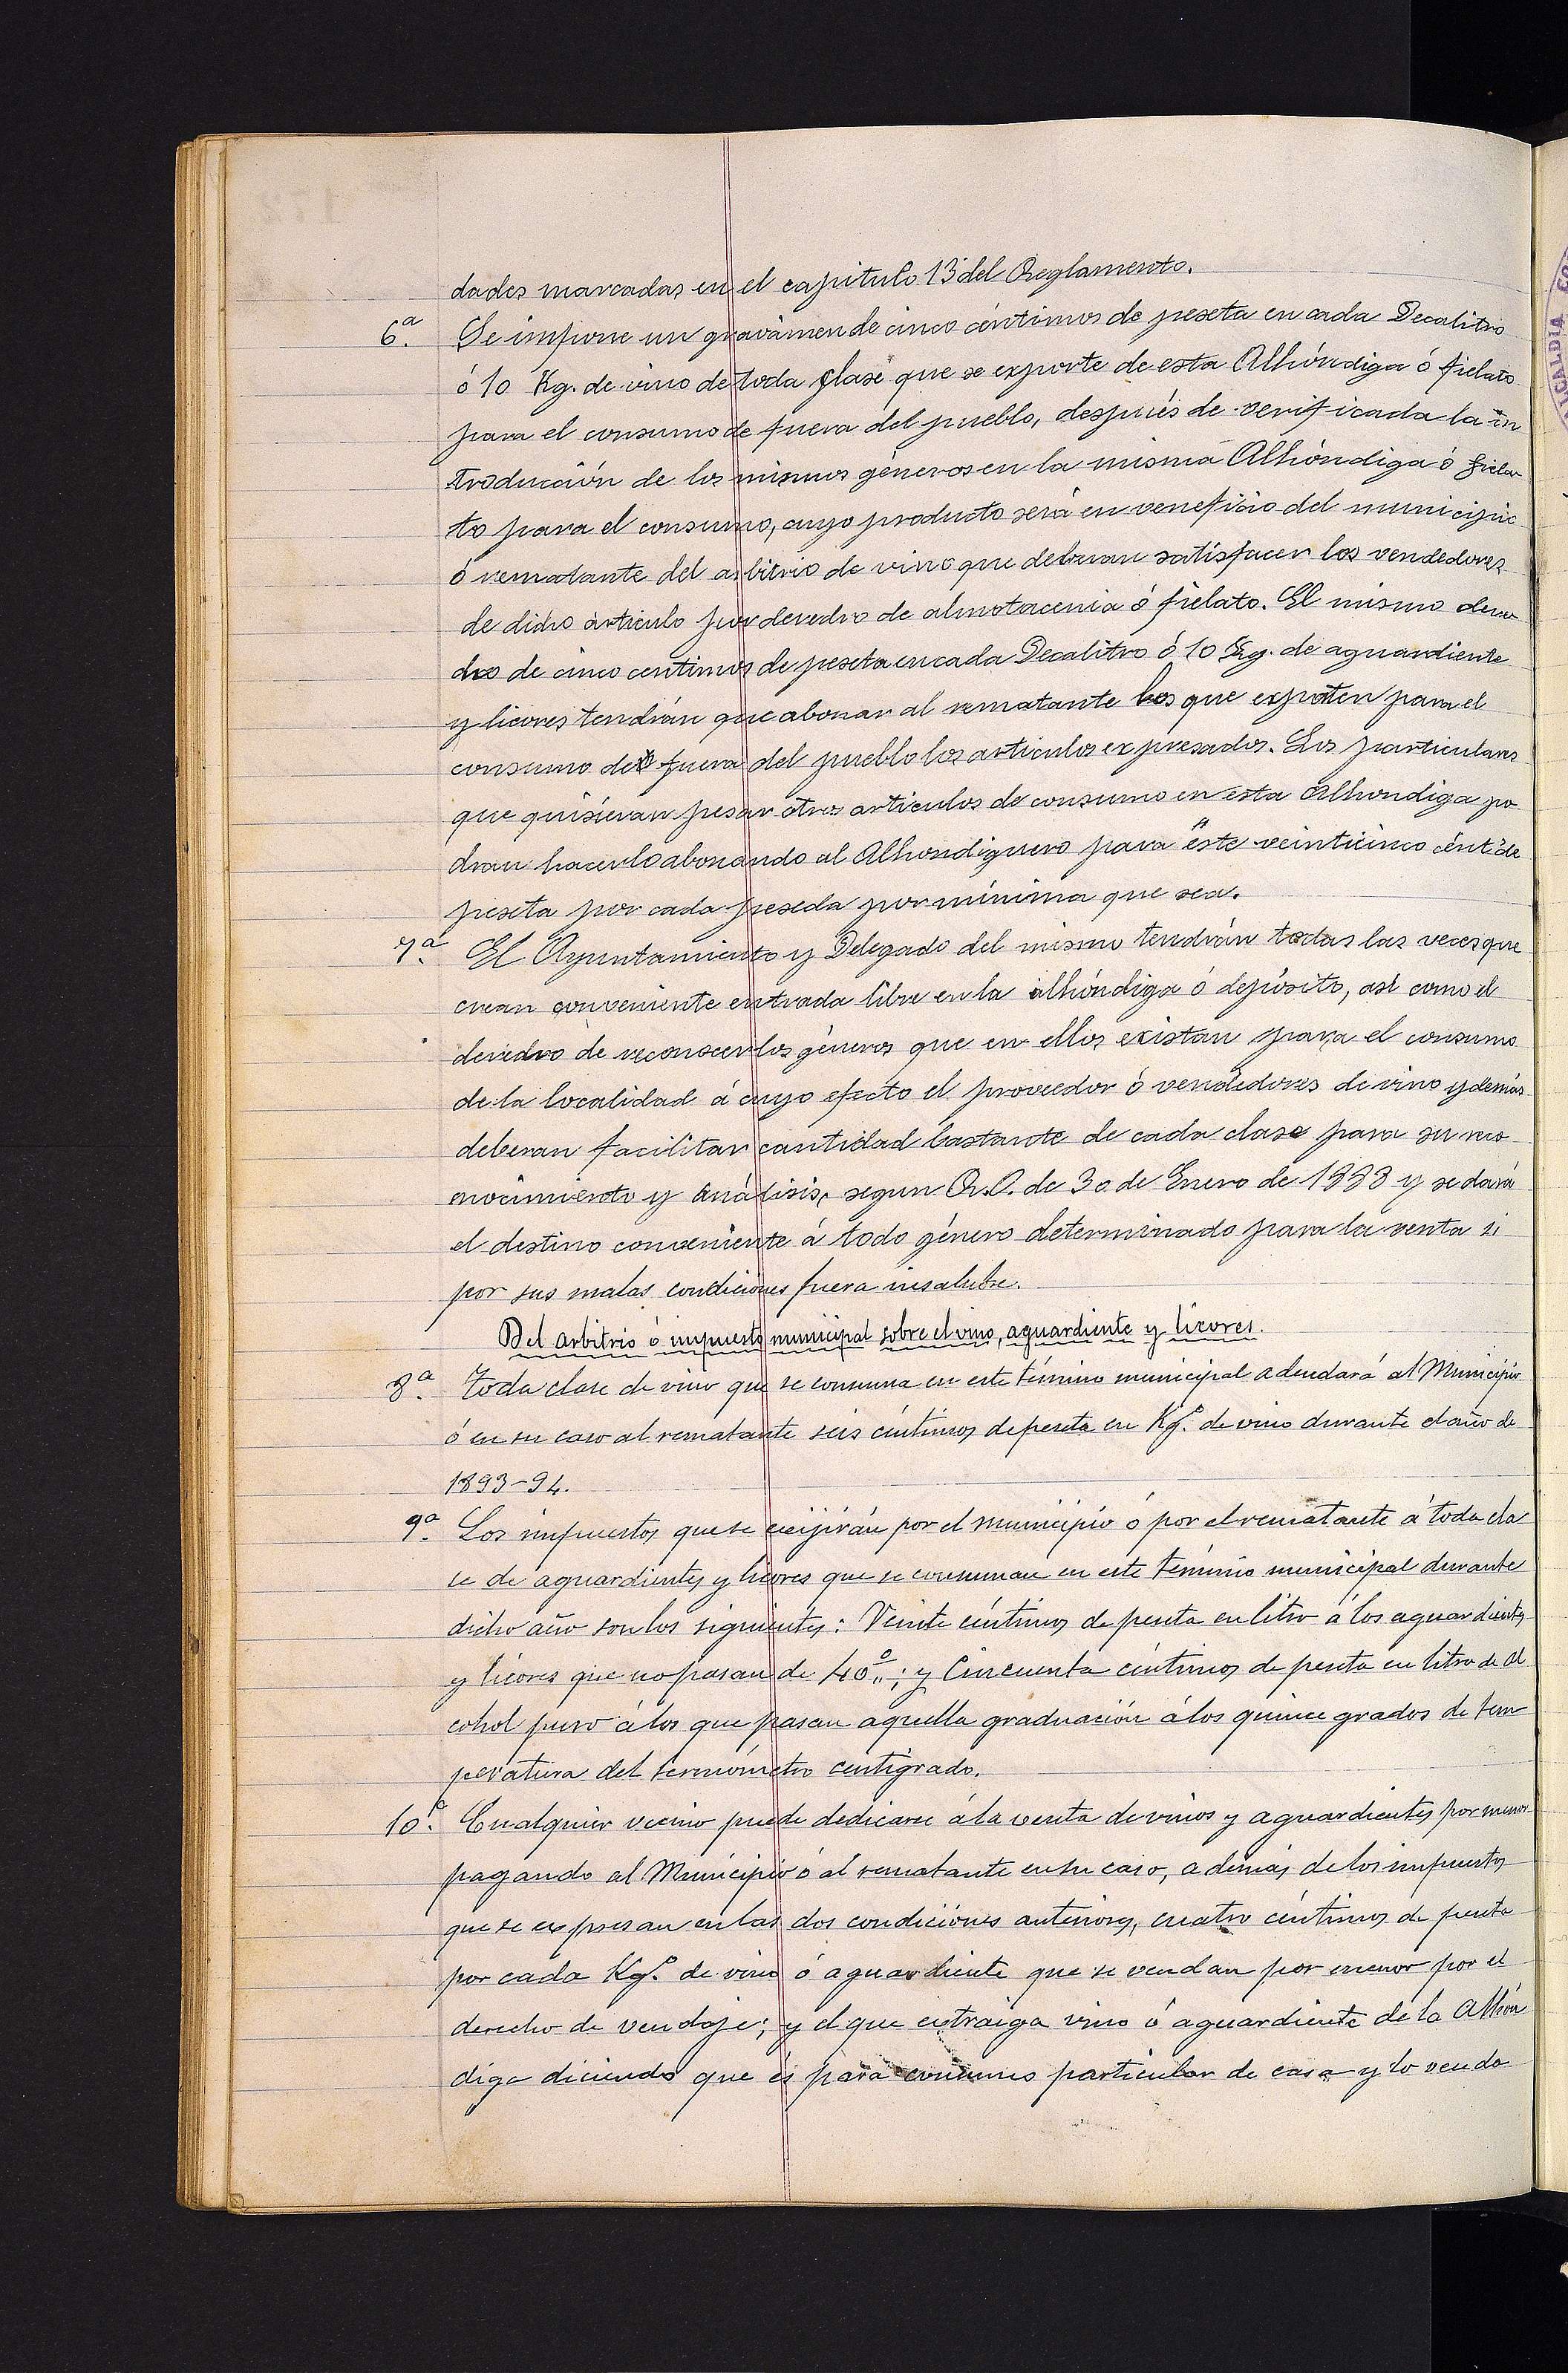 dades marcadas en el capitulo 13 del Reglamento.
6.ª Se impone un gravámen de cinco céntimos de peseta en cada Decalitro
ó 10 Kg. de vino de toda clase que se exporte de esta Alhóndiga ó fielato
para el consumo de fuera del pueblo, después de verificada la in
troducción de los mismos géneros en la misma Alhóndiga ó fiela
to para el consumo, cuyo producto será en veneficio del municipio
ó rematante del arbitrio de vino que deberan satisfacer los vendedores
de dicho àrticulo por derecho de almotacenia ó fielato. El mismo dere
cho de cinco centimos de peseta en cada Decalitro ó 10 Kg. de aguardiente
y licores tendrán que abonar al rematante los que exporten para el
consumo de fuera del pueblo los articulos expresados. Los particulares
que quisieran pesar otros articulos de consumo en esta Alhondiga po
dran hacerlo abonando al Alhondiguero para éste veinticinco cént. de
peseta por cada peseda por minima que sea.
7.ª El Ayuntamiento y Delegado del mismo tendrán todas las veces que
crean conveniente entrada libre en la alhóndiga ó depósito, asi como el
derecho de reconocer los géneros que en ellos existan para el consumo
de la localidad á cuyo efecto el proveedor ó vendedores de vino y demás
deberan facilitar cantidad bastante de cada clase para su reco
nocimiento y análisis, segun R.O. de 30 de Enero de 1888 y se dará
el destino conveniente á todo género determinado para la venta si
por sus malas condiciones fuera insalubre.
Del arbitrio ó impuesto municipal sobre el vino, aguardiente y licores.
8.ª Toda clase de vino que se consuma en este término municipal adeudará al Municipio
ó en su caso al rematante seis céntimos de peseta en Kg.º de vino durante el año de
1893-94.
9.ª Los impuestos que se exijirán por el municipio ó por el rematante á toda cla
se de aguardientes y licores que se consuman en este término municipal durante
dicho año son los siguientes: Veinte céntimos de peseta en litro á los aguardientes
y licores que no pasan de 40º; y Cincuenta céntimos de peseta en litro de al
cohol puro á los que pasan aquella graduación á los quince grados de tem
peratura del termómetro centigrado.
10.ª Cualquier vecino puede dedicarse á la venta de vinos y aguardientes por menor
pagando al Municipio ó al rematante en su caso, además de los impuestos
que se expresan en las dos condiciones anteriores, cuatro céntimos de peseta
por cada Kg.º de vino ó aguardiente que se vendan por menor por el
derecho de vendaje; y el que extraiga vino ó aguardiente de la Alhón
diga diciendo que és para consumo particular de casa y lo venda